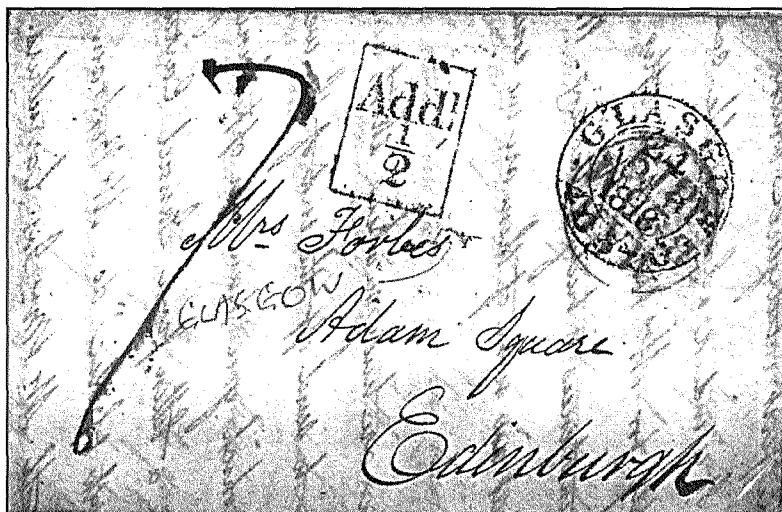 7
Add!
1
2
GLASGOW
22
1818
Mrs Forbes
GLASGOW
Adam Square
Edinburgh